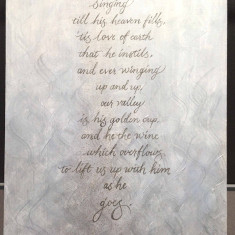 Singing
till his heaven fills,
'tis love of earth
that he instils,
and ever winging
up and up,
our valley
is his golden cup
and he the wine
which overflows
to lift us up with him
as he
goes.